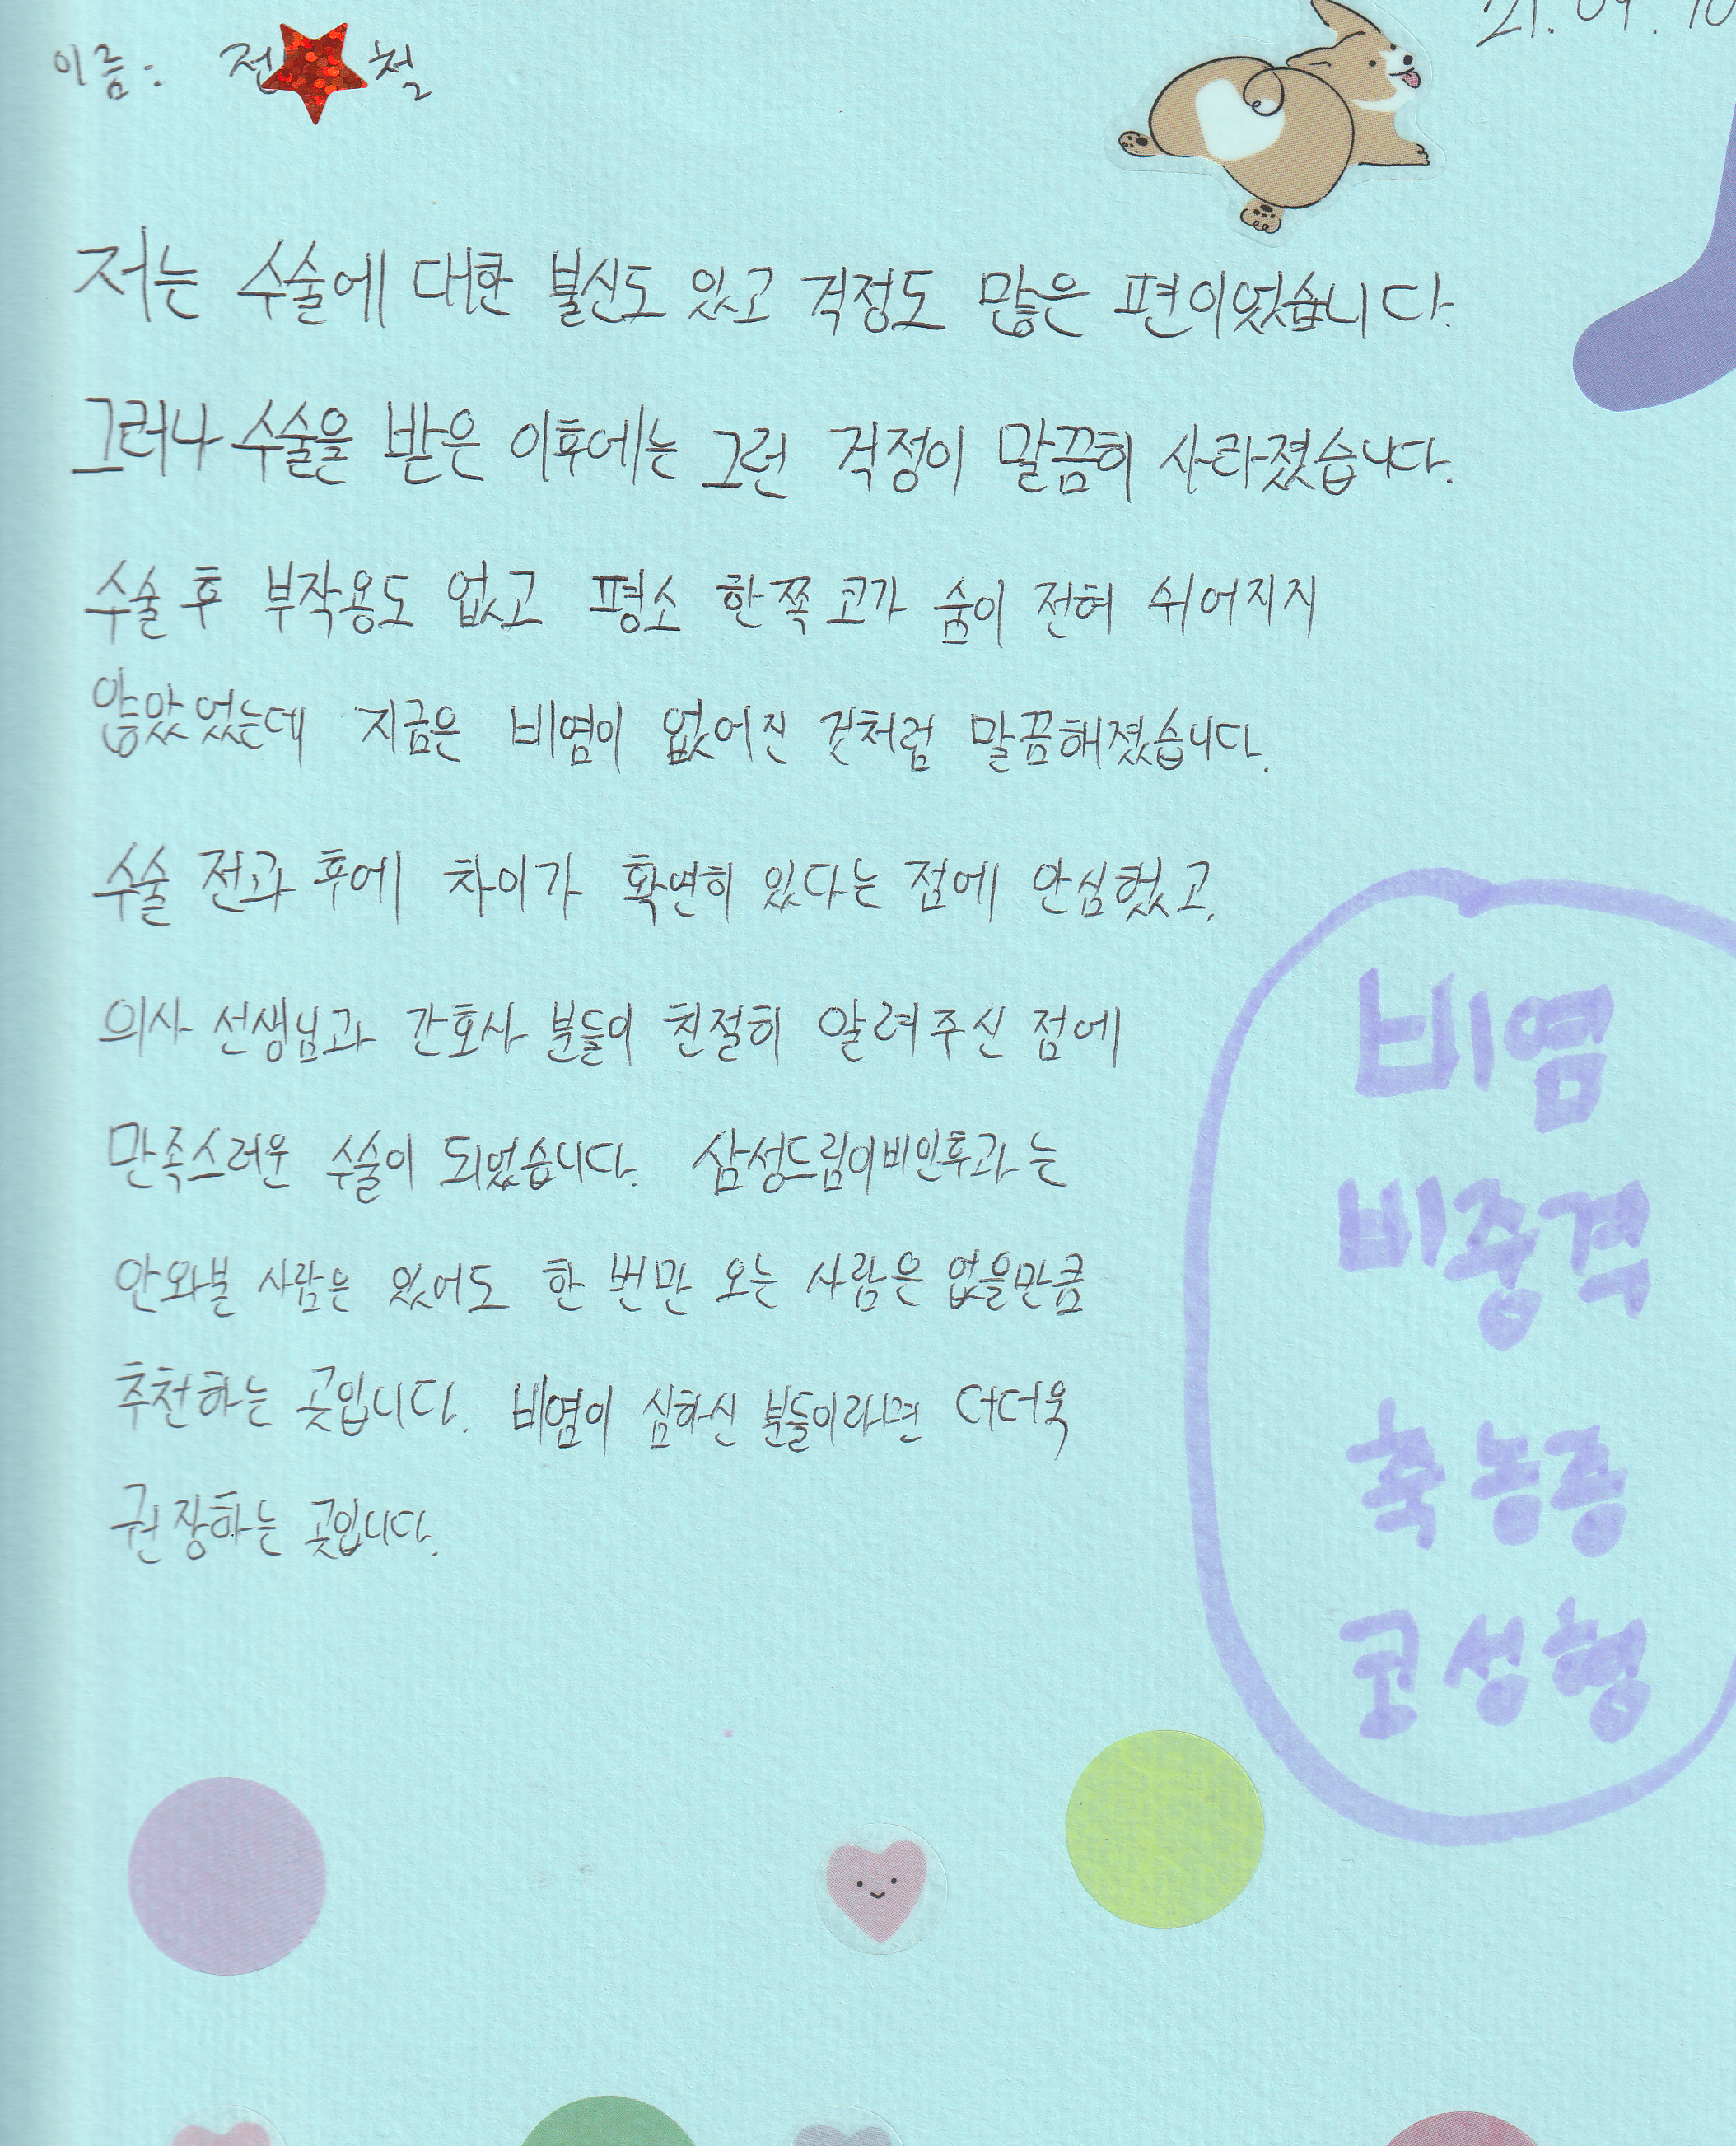 21. 09. 10
이름: 전 철
저는 수술에 대한 불신도 있고 걱정도 많은 편이었습니다.
그러나 수술을 받은 이후에는 그런 걱정이 말끔히 사라졌습니다.
수술 후 부작용도 없고 평소 한쪽 코가 숨이 전혀 쉬어지지
않았었는데 지금은 비염이 없어진 것처럼 말끔해졌습니다.
수술 전과 후에 차이가 확연히 있다는 점에 안심했고,
의사 선생님과 간호사 분들이 친절히 알려주신 점에
만족스러운 수술이 되었습니다. 삼성드림이비인후과는
안와본 사람은 있어도 한 번만 오는 사람은 없을만큼
추천하는 곳입니다. 비염이 심하신 분들이라면 더더욱
권장하는 곳입니다.
비염
비중격
축농증
코성형